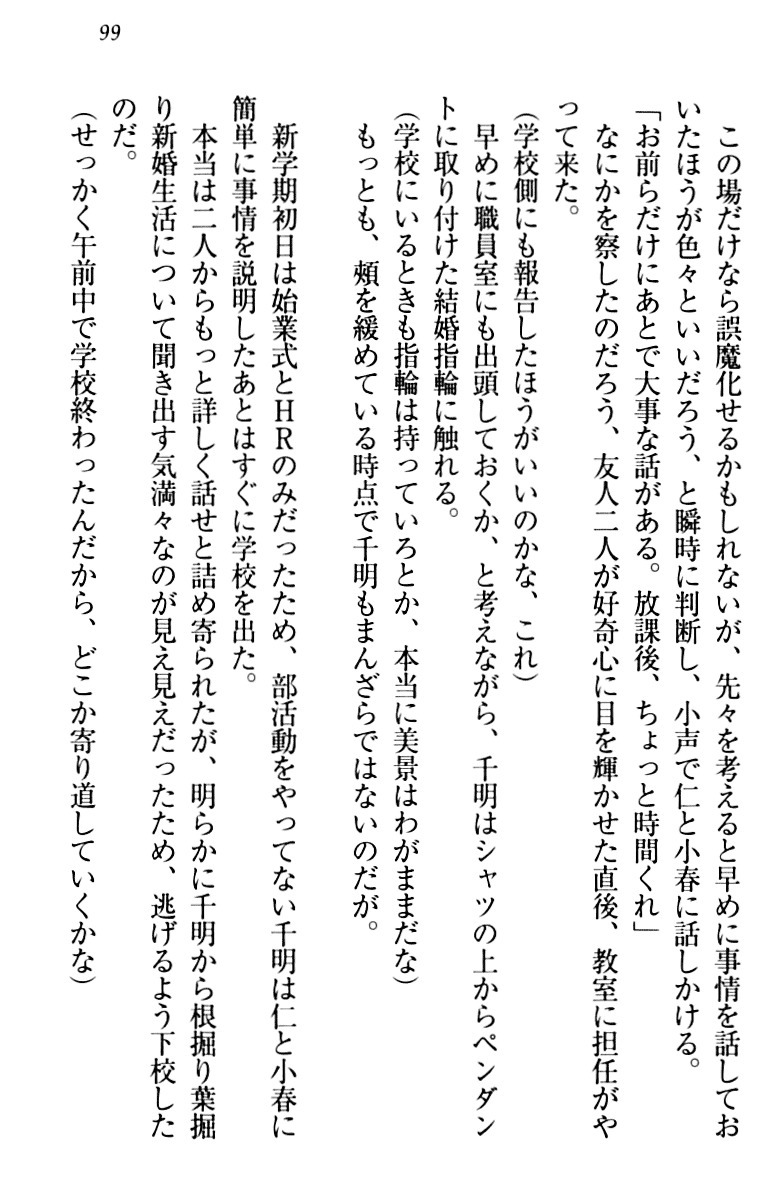 99
この場だけなら誤魔化せるかもしれないが、先々を考えると早めに事情を話してお
いたほうが色々といいだろう、と瞬時に判断し、小声で仁と小春に話しかける。
「お前らだけにあとで大事な話がある。放課後、ちょっと時間くれ」
なにかを察したのだろう、友人二人が好奇心に目を輝かせた直後、教室に担任がや
って来た。
(学校側にも報告したほうがいいのかな、これ)
早めに職員室にも出頭しておくか、と考えながら、千明はシャツの上からペンダン
トに取り付けた結婚指輪に触れる。
(学校にいるときも指輪は持っていろとか、本当に美景はわがままだな)
もっとも、頰を緩めている時点で千明もまんざらではないのだが。
新学期初日は始業式とHRのみだったため、部活動をやってない千明は仁と小春に
簡単に事情を説明したあとはすぐに学校を出た。
本当は二人からもっと詳しく話せと詰め寄られたが、明らかに千明から根掘り葉掘
り新婚生活について聞き出す気満々なのが見え見えだったため、逃げるよう下校した
のだ。
(せっかく午前中で学校終わったんだから、どこか寄り道していくかな)